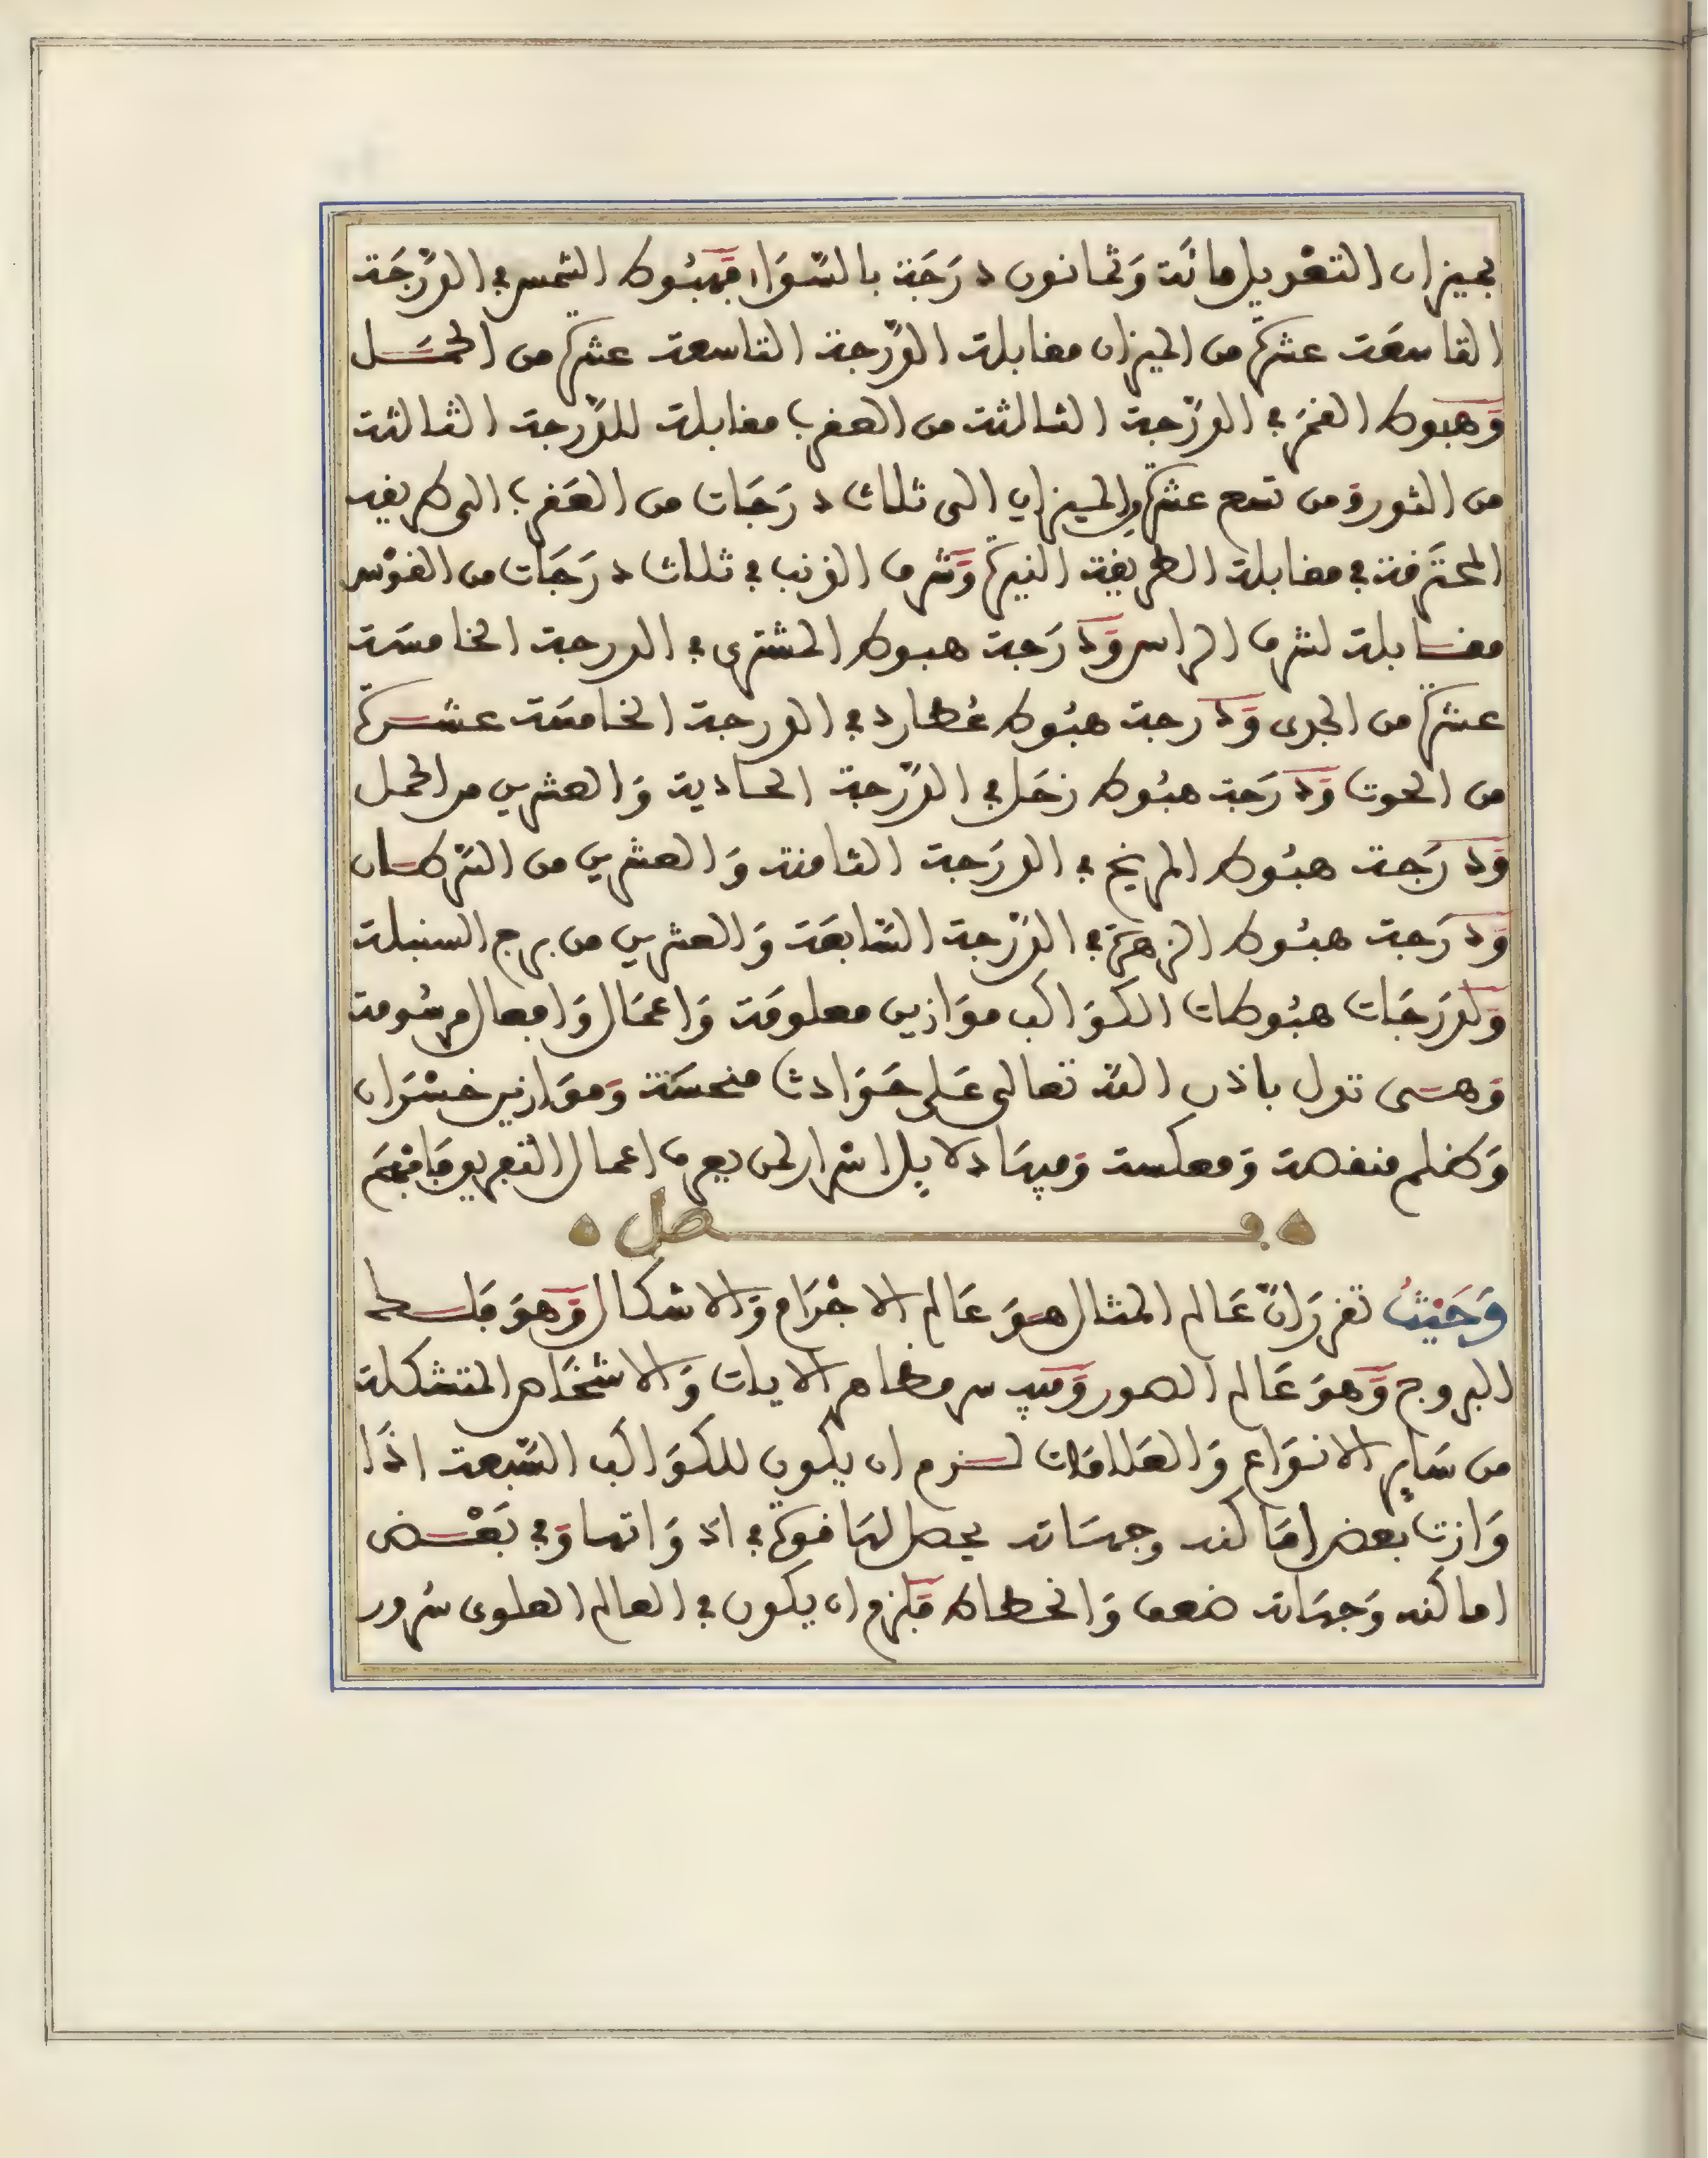 بميزان التعديل مائة وَثمانون دَرَجَة بالسَّوَاء فهبُوط الشمس في الدَّرَجَة
التاسعَة عشرة من الميزان مقابلة الدَّرجة التاسعة عشرة من الحمَل
وَهبوط القمَر في الدَّرَجة الثالثة من العقرب مقابلة للدَّرجة الثالثة
من الثور ومن تسع عشرة الميزان الى ثلاث دَرَجَات من العَقرب الى طريقة
المحترقة في مقابلة الطريقة النيرة وَشرف الذنب في ثلاث دَرَجَات من القوْس
مقابلة لشرف الراس وَدَرَجة هبوط المشترى في الدرجة الخامسَة
عشرة من الجدى وَدَرجة هبُوط عُطارد في الدرجة الخامسَة عشرة
من الحوت وَدَرَجَة هبُوط زحَل في الدَّرَجة الحادية وَالعشرين من الحمل
وَدَرَجة هبُوط المريخ في الدرَجة الثامنة وَالعشرين من السَّرطان
وَدَرَجة هبُوط الزهرَة في الدَّرَجة السَّابعَة وَالعشرين من برج السنبلة
وَلدَرَجَات هبُوطات الكوَاكب موَازين معلومَة وَاعمَال وَافعال مرسُومة
وَهى تدل باذن الله تعالى عَلى حَوَادث منحسَة وَموَازين خسْرَان
وَظلم منقصة وَمعكسة وَفيهَا دلايل اسْرار لمن يعرف اعمال التعريف فافهَم
فصل
وَحَيْثُ تقرر اَنَّ عَالم المثال هوَ عَالم الاجْرَام وَالاشكال وَهوَ فلك
البروج وَهوَ عَالم الصور وَفيه سر مظاهر الايات وَالاشخَاص المتشكلة
من سَاير الانوَاع وَالعَلامَات لزم ان يكون للكوَاكب السَّبعة اذَا
وَازت بعض امَاكنه وجهَاته يحصل لهَا قوة في اد وَاتها وَفي بَعْض
اماكنه وَجهَاته ضعف وَانحطاط فلزم ان يكون في العالم العلوى سُرور